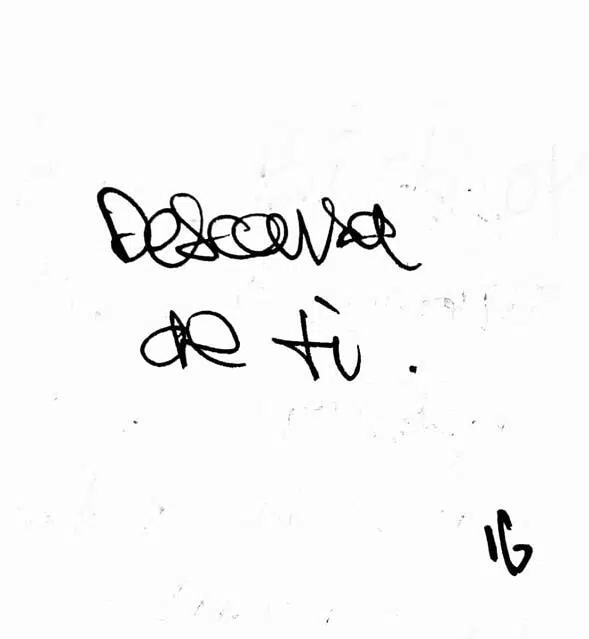 Descansa
de tù.
IG